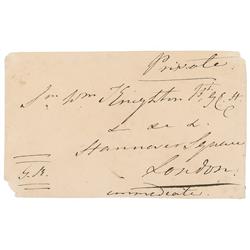 Private.
Sir Wm Knighton Bt. G.C.H.
& & &
Hannover Square
London.
G.R.
immediate.